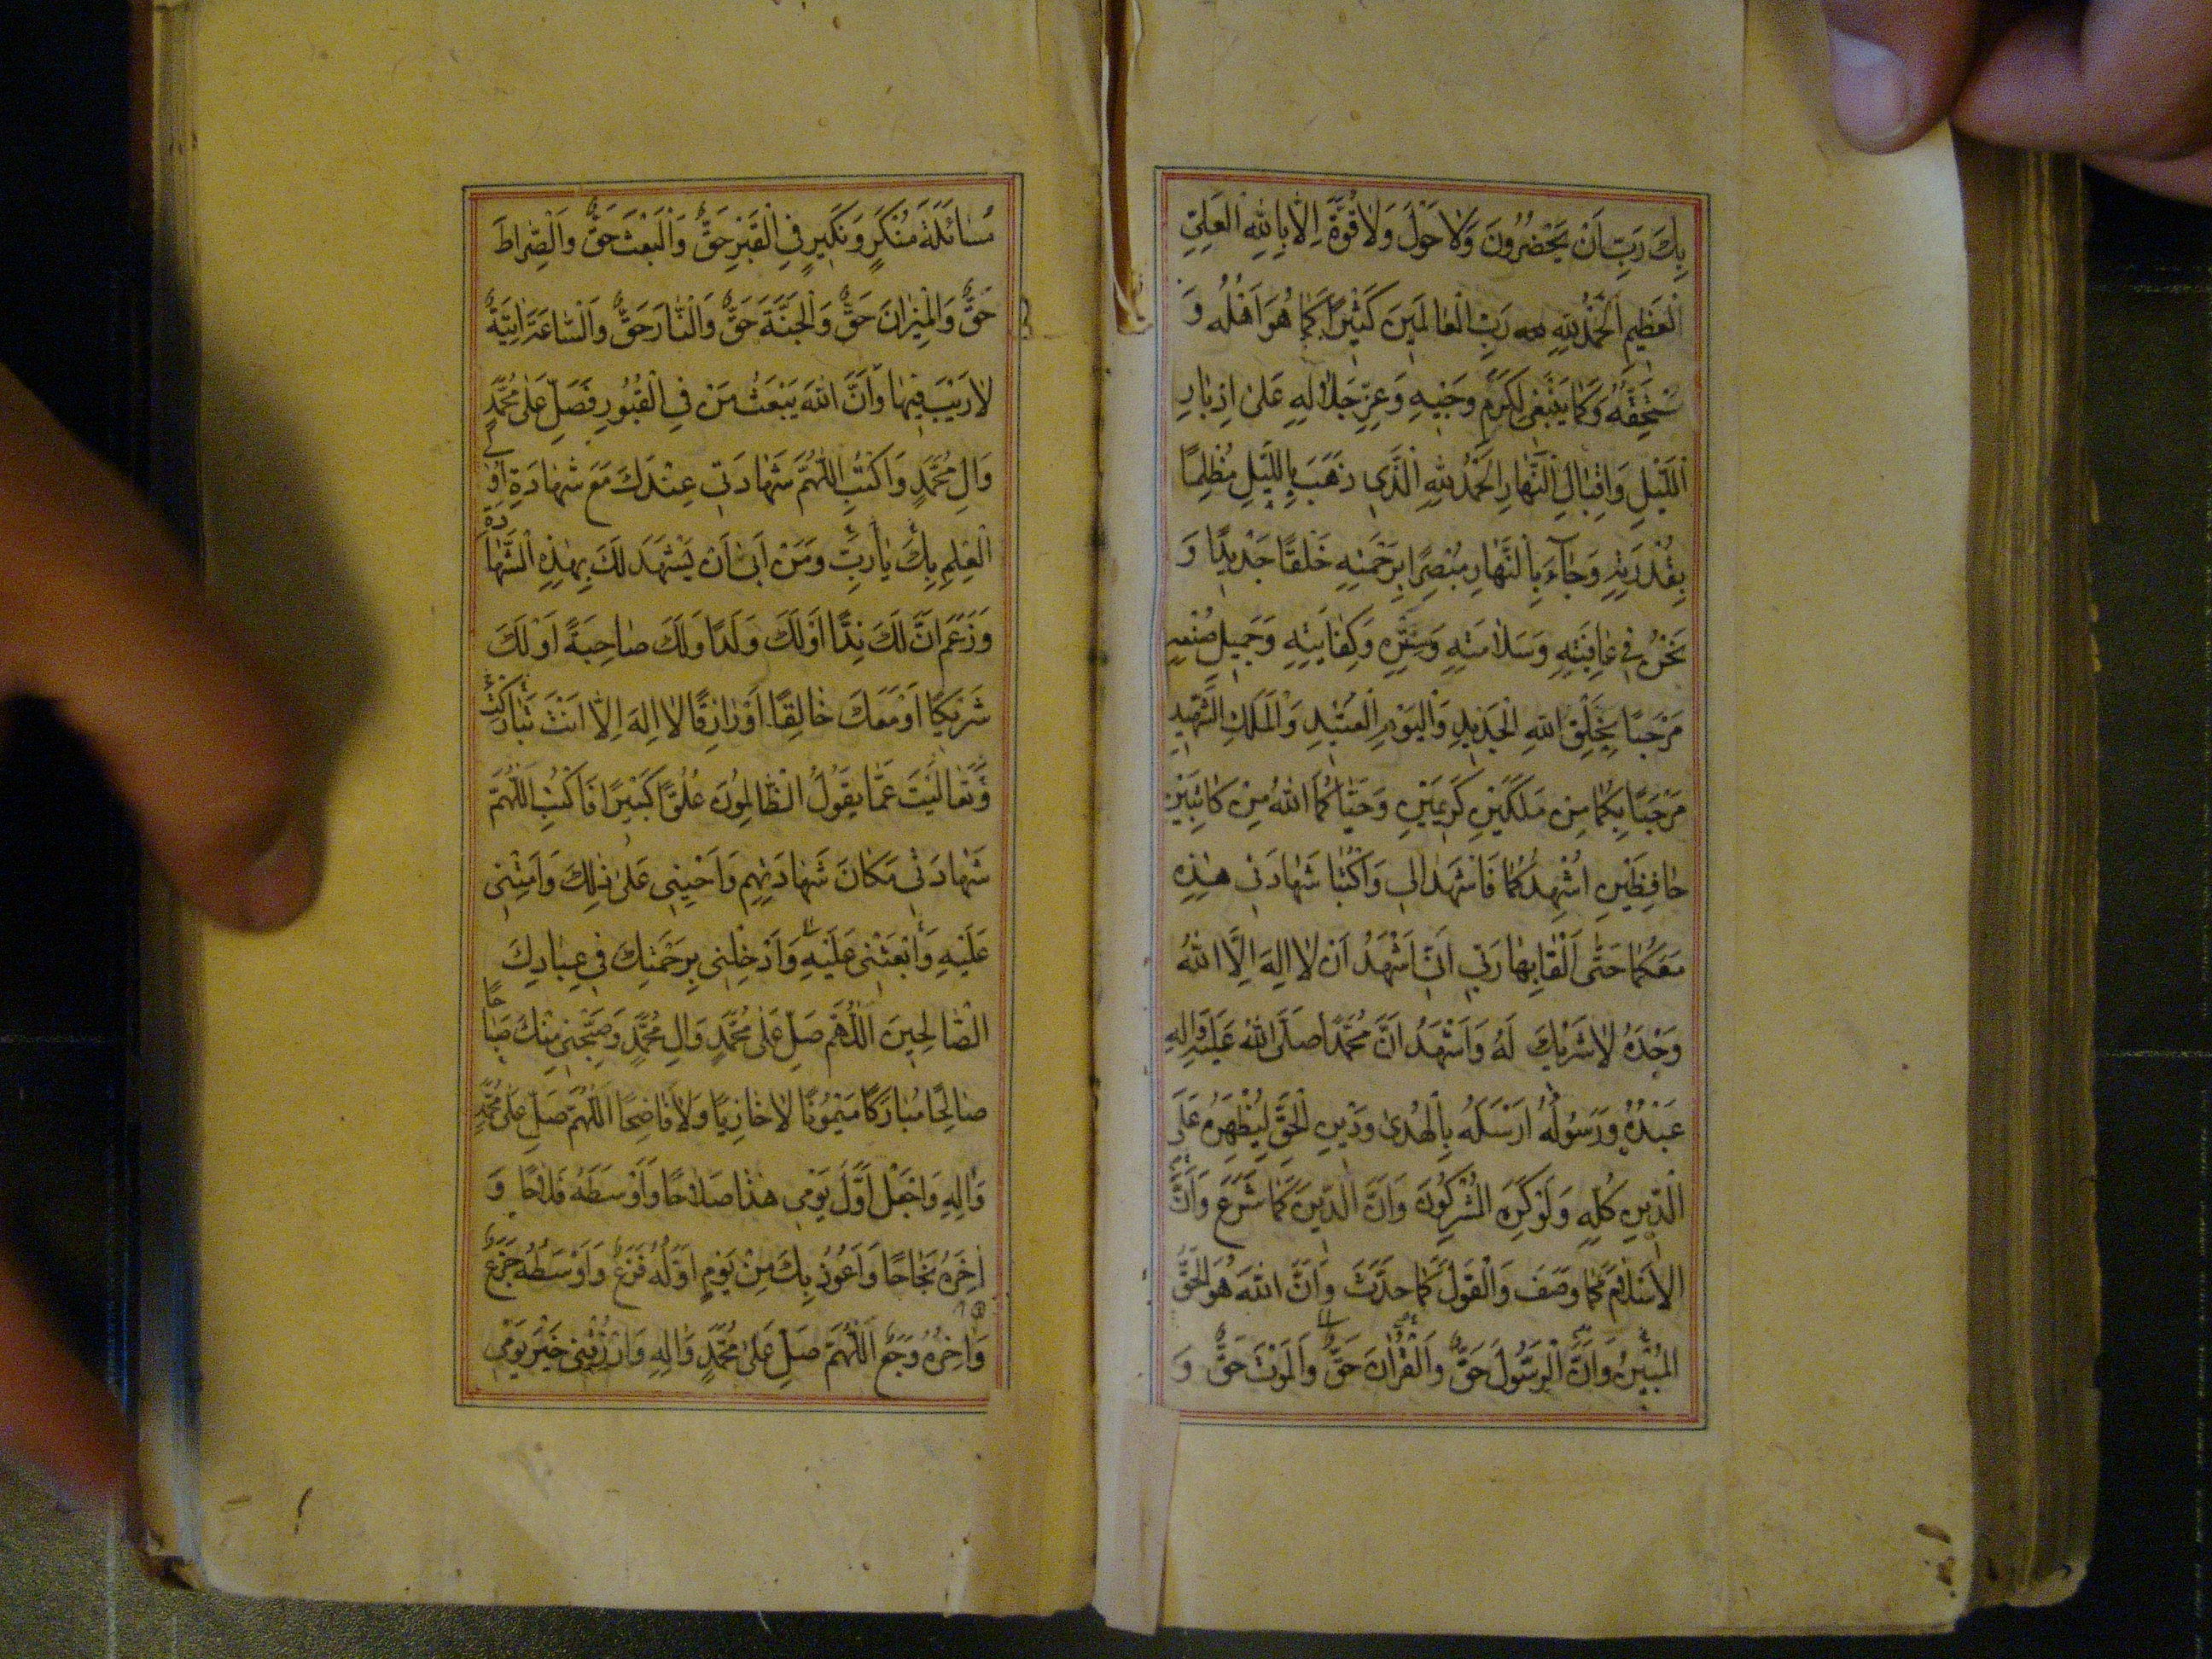 بِكَ رَبِّ اَنْ يَحْضُرُونَ وَلَا حَوْلَ وَلَا قُوَّةَ اِلَّا بِاللهِ الْعَلِيِّ
الْعَظِيمِ اَلْحَمْدُ لِلّٰهِ رَبِّ الْعَالَمِينَ كَثِيرًا كَمَا هُوَ اَهْلُهُ وَ
مُسْتَحِقُّهُ وَكَمَا يَنْبَغِي لِكَرَمِ وَجْهِهِ وَعِزِّ جَلَالِهِ عَلَى اِدْبَارِ
اللَّيْلِ وَاِقْبَالِ النَّهَارِ اَلْحَمْدُ لِلّٰهِ الَّذِي ذَهَبَ بِاللَّيْلِ مُظْلِمًا
بِقُدْرَتِهِ وَجَآءَ بِالنَّهَارِ مُبْصِرًا بِرَحْمَتِهِ خَلْقًا جَدِيدًا وَ
نَحْنُ فِي عَافِيَتِهِ وَسَلَامَتِهِ وَسِتْرِهِ وَكِفَايَتِهِ وَجَمِيلِ صُنْعِهِ
مَرْحَبًا بِخَلْقِ اللهِ الْجَدِيدِ وَالْيَوْمِ الْعَتِيدِ وَالْمَلَكِ الشَّهِيدِ
مَرْحَبًا بِكُمَا مِنْ مَلَكَيْنِ كَرِيمَيْنِ وَحَيَّاكُمَا اللهُ مِنْ كَاتِبَيْنِ
حَافِظَيْنِ اُشْهِدُكُمَا فَاشْهَدَا لِي وَاكْتُبَا شَهَادَتِي هٰذِهِ
مَعَكُمَا حَتَّى اَلْقَا بِهَا رَبِّي اَنِّي اَشْهَدُ اَنْ لَا اِلٰهَ اِلَّا اللهُ
وَحْدَهُ لَا شَرِيكَ لَهُ وَاَشْهَدُ اَنَّ مُحَمَّدًا صَلَّى اللهُ عَلَيْهِ وَآلِهِ
عَبْدُهُ وَرَسُولُهُ اَرْسَلَهُ بِالْهُدَى وَدِينِ الْحَقِّ لِيُظْهِرَهُ عَلَى
الدِّينِ كُلِّهِ وَلَوْ كَرِهَ الْمُشْرِكُونَ وَاَنَّ الدِّينَ كَمَا شَرَعَ وَاَنَّ
الْاِسْلَامَ كَمَا وَصَفَ وَالْقَوْلَ كَمَا حَدَّثَ وَاَنَّ اللهَ هُوَ الْحَقُّ
الْمُبِينُ وَاَنَّ الرَّسُولَ حَقٌّ وَالْقُرْاٰنَ حَقٌّ وَالْمَوْتَ حَقٌّ وَ
مُسَائَلَةَ مُنْكَرٍ وَنَكِيرٍ فِي الْقَبْرِ حَقٌّ وَالْبَعْثَ حَقٌّ وَالصِّرَاطَ
حَقٌّ وَالْمِيزَانَ حَقٌّ وَالْجَنَّةَ حَقٌّ وَالنَّارَ حَقٌّ وَالسَّاعَةَ اٰتِيَةٌ
لَا رَيْبَ فِيهَا وَاَنَّ اللهَ يَبْعَثُ مَنْ فِي الْقُبُورِ فَصَلِّ عَلَى مُحَمَّدٍ
وَالِ مُحَمَّدٍ وَاكْتُبِ اللّٰهُمَّ شَهَادَتِي عِنْدَكَ مَعَ شَهَادَةِ اُولِي
الْعِلْمِ بِكَ يَا رَبِّ وَمَنْ اَبَى اَنْ يَشْهَدَ لَكَ بِهٰذِهِ الشَّهَادَةِ
وَزَعَمَ اَنَّ لَكَ نِدًّا اَوْ لَكَ وَلَدًا وَلَكَ صَاحِبَةً اَوْ لَكَ
شَرِيكًا اَوْ مَعَكَ خَالِقًا اَوْ رَازِقًا لَا اِلٰهَ اِلَّا اَنْتَ تَبَارَكْتَ
وَتَعَالَيْتَ عَمَّا يَقُولُ الظَّالِمُونَ عُلُوًّا كَبِيرًا فَاكْتُبِ اللّٰهُمَّ
شَهَادَتِي مَكَانَ شَهَادَتِهِمْ وَاَحْيِنِي عَلَى ذٰلِكَ وَاَمِتْنِي
عَلَيْهِ وَابْعَثْنِي عَلَيْهِ وَاَدْخِلْنِي بِرَحْمَتِكَ فِي عِبَادِكَ
الصَّالِحِينَ اَللّٰهُمَّ صَلِّ عَلَى مُحَمَّدٍ وَالِ مُحَمَّدٍ وَصَبِّحْنِي مِنْكَ صَبَاحًا
صَالِحًا مُبَارَكًا مَيْمُونًا لَا خَازِيًا وَلَا فَاضِحًا اَللّٰهُمَّ صَلِّ عَلَى مُحَمَّدٍ
وَاٰلِهِ وَاجْعَلْ اَوَّلَ يَوْمِي هٰذَا صَلَاحًا وَاَوْسَطَهُ فَلَاحًا وَ
اٰخِرَهُ نَجَاحًا وَاَعُوذُ بِكَ مِنْ يَوْمٍ اَوَّلُهُ فَزَعٌ وَاَوْسَطُهُ جَزَعٌ
وَاٰخِرُهُ وَجَعٌ اَللّٰهُمَّ صَلِّ عَلَى مُحَمَّدٍ وَاٰلِهِ وَارْزُقْنِي خَيْرَ يَوْمِي